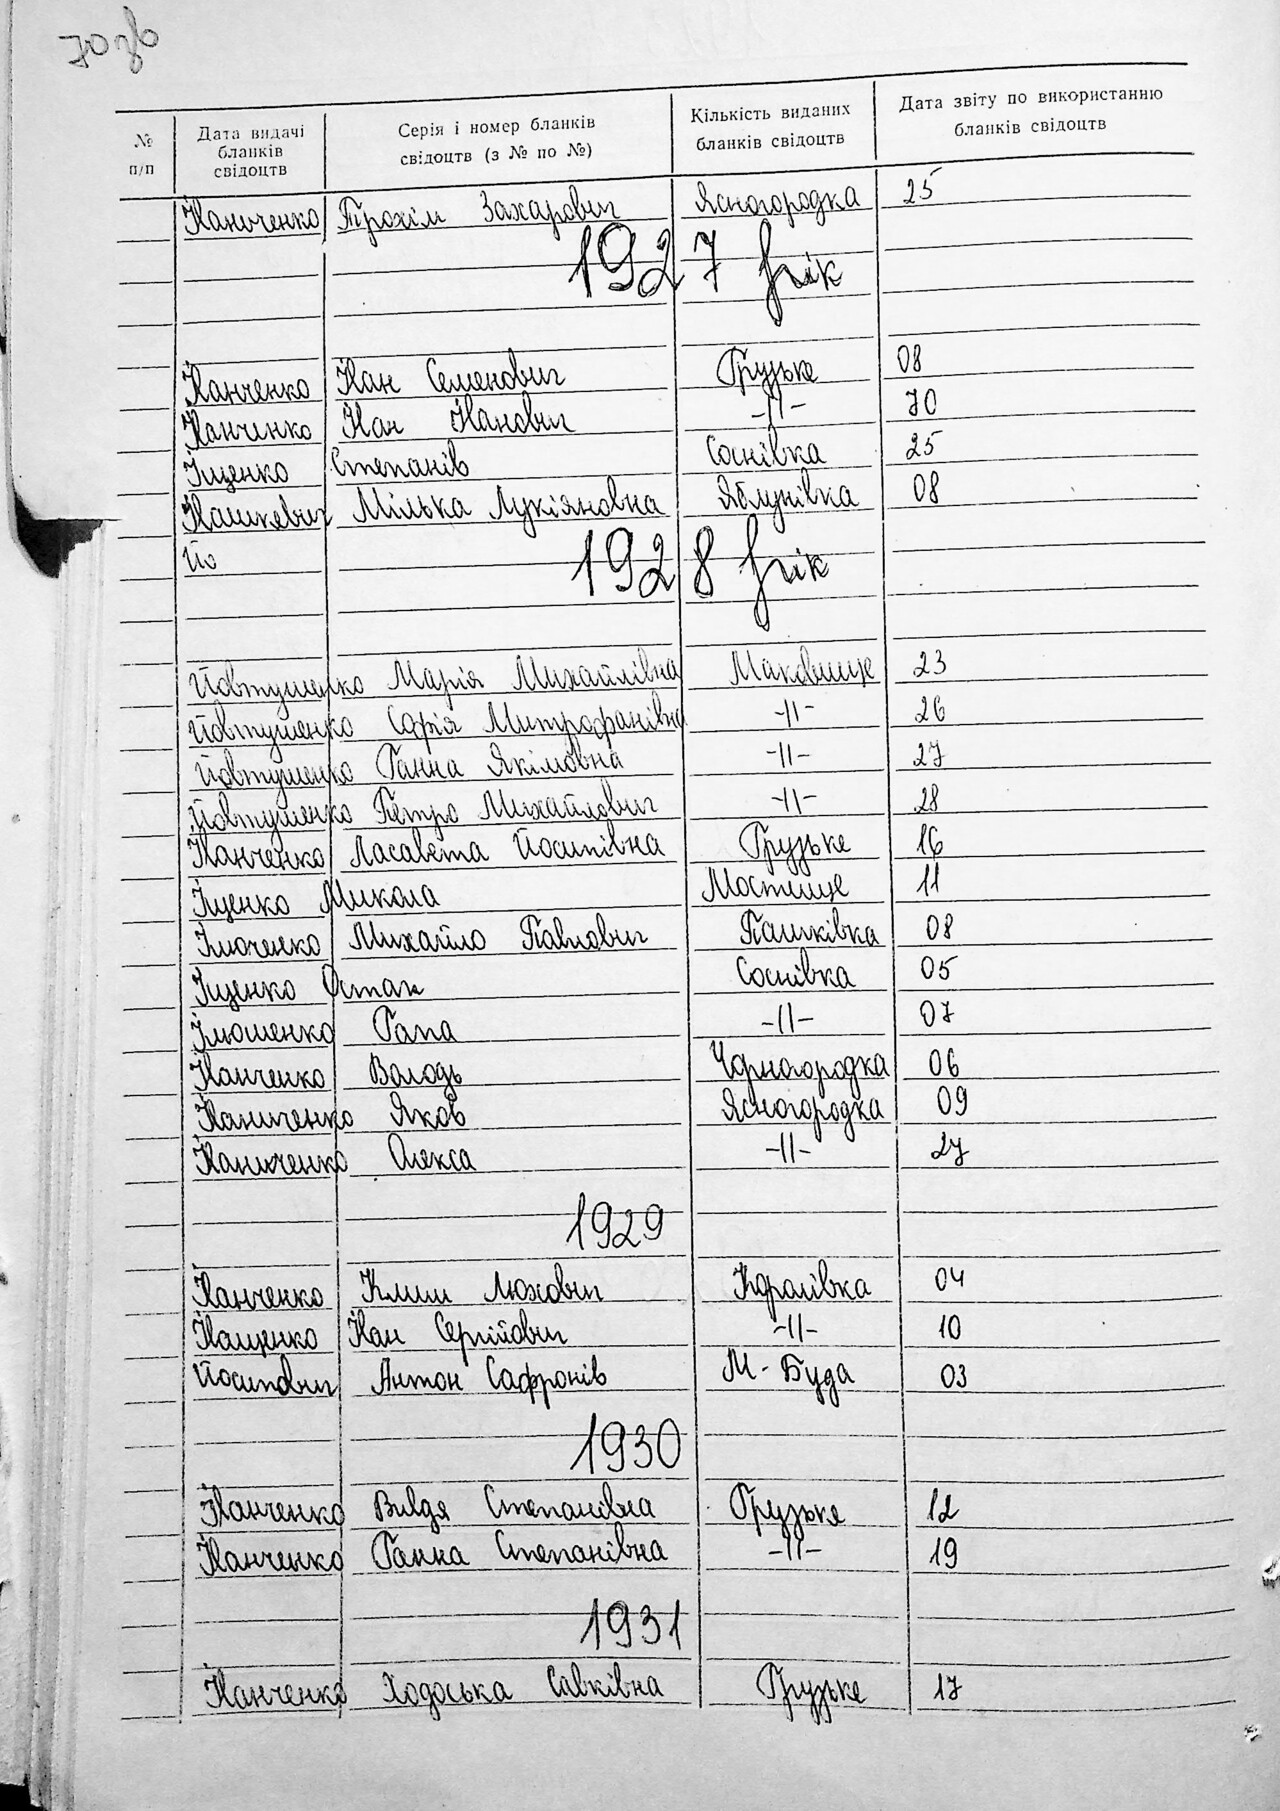 70 зв
№ п/п
Дата видачі бланків свідоцтв
Серія і номер бланків свідоцтв (з № по №)
Кількість виданих бланків свідоцтв
Дата звіту по використанню бланків свідоцтв
Іваниченко Трохім Захарович Ясногородка 25
1927 рік
Іванченко Іван Семенович Грузьке 08
Іванченко Іван Іванович -||- 70
Іщенко Степанів Соснівка 25
Івашкевич Мілька Лукіяновна Яблунівка 08
Йо
1928 рік
Йовтушенко Марія Михайлівна Маковище 23
Йовтушенко Софія Митрофанівна -||- 26
Йовтушенко Ганна Якімовна -||- 27
Йовтушенко Петро Михайлович -||- 28
Іванченко Ласавета Йосипівна Грузьке 16
Іщенко Микола Мостище 11
Ілюченко Михайло Павлович Пашківка 08
Іщенко Остап Соснівка 05
Ілюшенко Гапа -||- 07
Іванченко Володь Чорногородка 06
Іваниченко Яков Ясногородка 09
Іваниченко Олекса -||- 27
1929
Іванченко Клим Юхович Королівка 04
Іващенко Іван Сергійович -||- 10
Йосипович Антон Сафронів М-Буда 03
1930
Іванченко Вивдя Степанівна Грузьке 12
Іванченко Ганна Степанівна -||- 19
1931
Іванченко Ходоська Савківна Грузьке 17